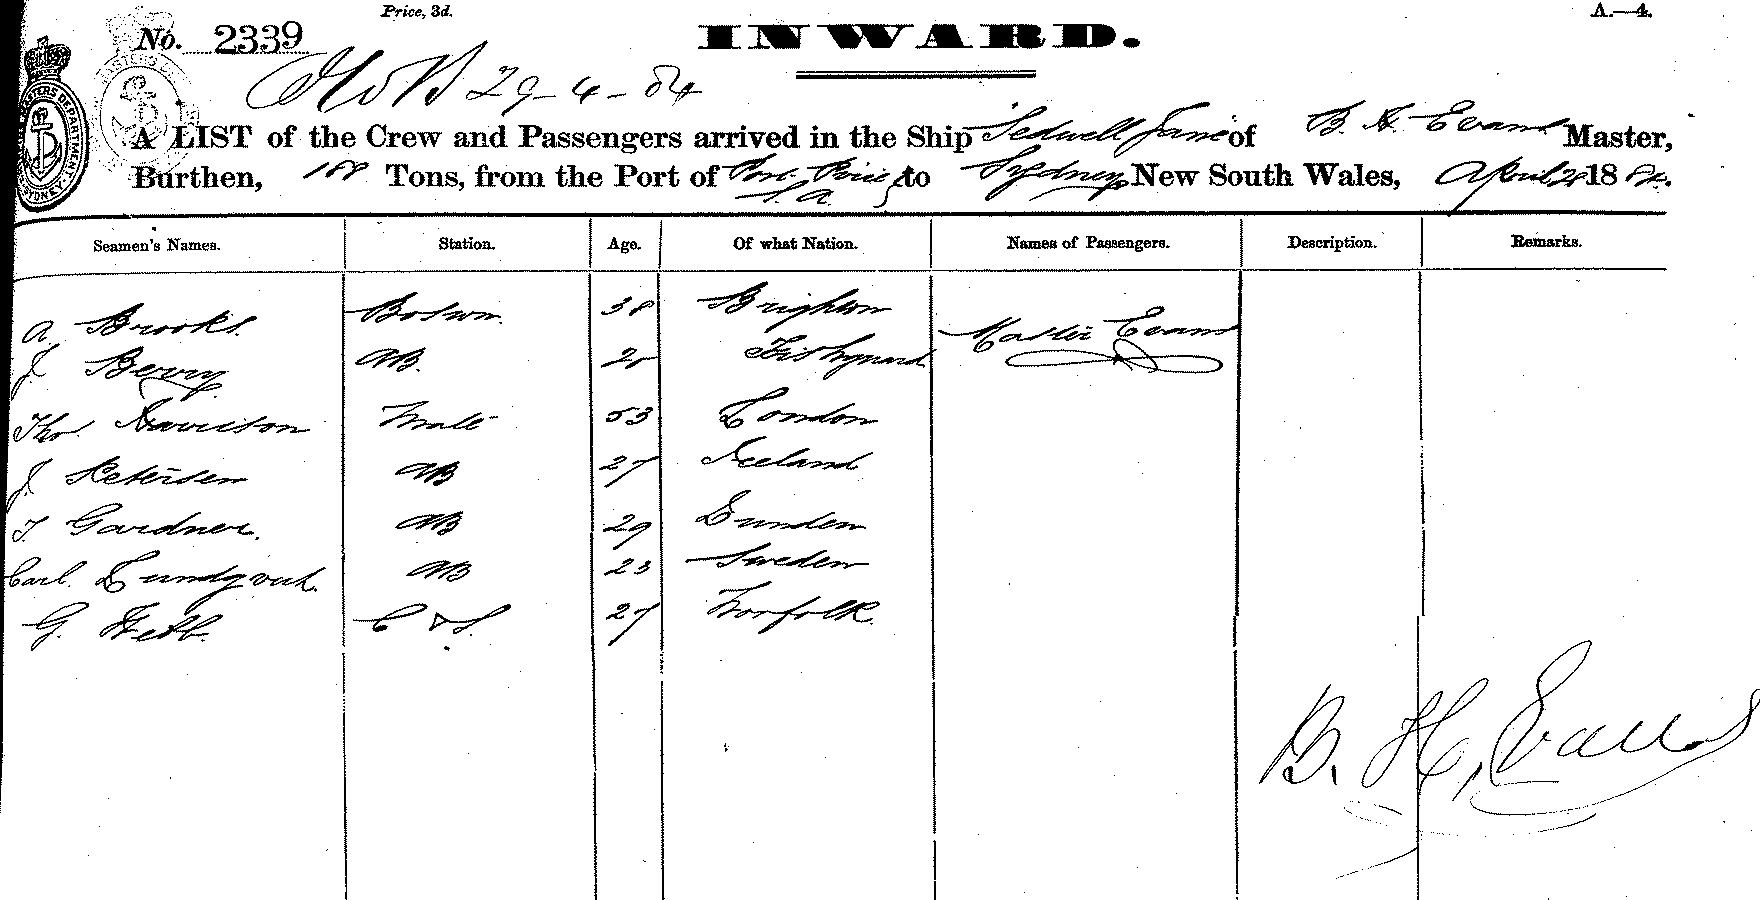 Price, 3d.
A.—4.
No. 2339
INWARD.
29-4-84
A LIST of the Crew and Passengers arrived in the Ship Sedwell Jane of B. H. Evans Master,
Burthen, 188 Tons, from the Port of Port Pirie S.A. to Sydney, New South Wales, April 28 1884.
Seamen's Names. Station. Age. Of what Nation. Names of Passengers. Description. Remarks.
A. Brooks. Boswn. 38 Brighton Master Evans
J. Berry AB. 20 Fishguard
Thos. Davidson Mate 53 London
J. Petersen AB 27 Iceland
T. Gardner. AB 29 Dunden
Carl. Lundqvist. AB 23 Sweden
G. Webb. C & S. 27 Norfolk.
B. H. Evans